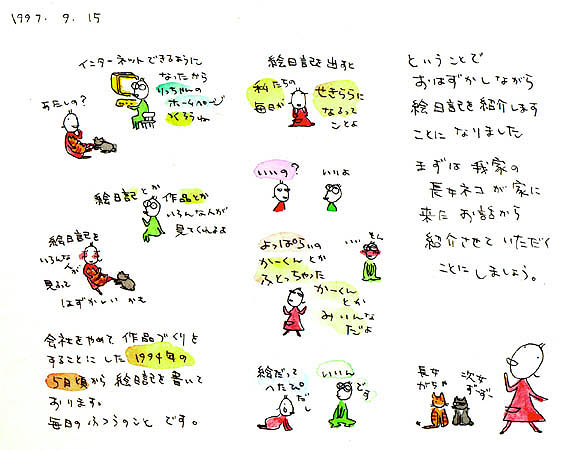 1997. 9. 15
インターネットできるように
なったから
りっちゃんの
ホームページ
つくろうね
あたしの？
絵日記とか 作品とか
いろんな人が
見てくれるよ
絵日記を
いろんな
人が
見るって
はずかしい かも
会社をやめて 作品づくりを
することにした 1994年の
5月頃から 絵日記を書いて
おります。
毎日のふつうのこと です。
絵日記を出すと
私たちの
毎日が
せきららに
なるって
ことよ
いいの？
いいよ
よっぱらいの
かーくんとか
ふとっちゃった
かーくん
とか
みいんな
だよ
いい もん
絵だって
へたっぴ
だし
いいん
です
ということで
おはずかしながら
絵日記を紹介します
ことに なりました
まずは 我家の
長女ネコ が 家に
来た お話から
紹介させて いただく
ことに しましょう。
長女
がちゃ
次女
ずず